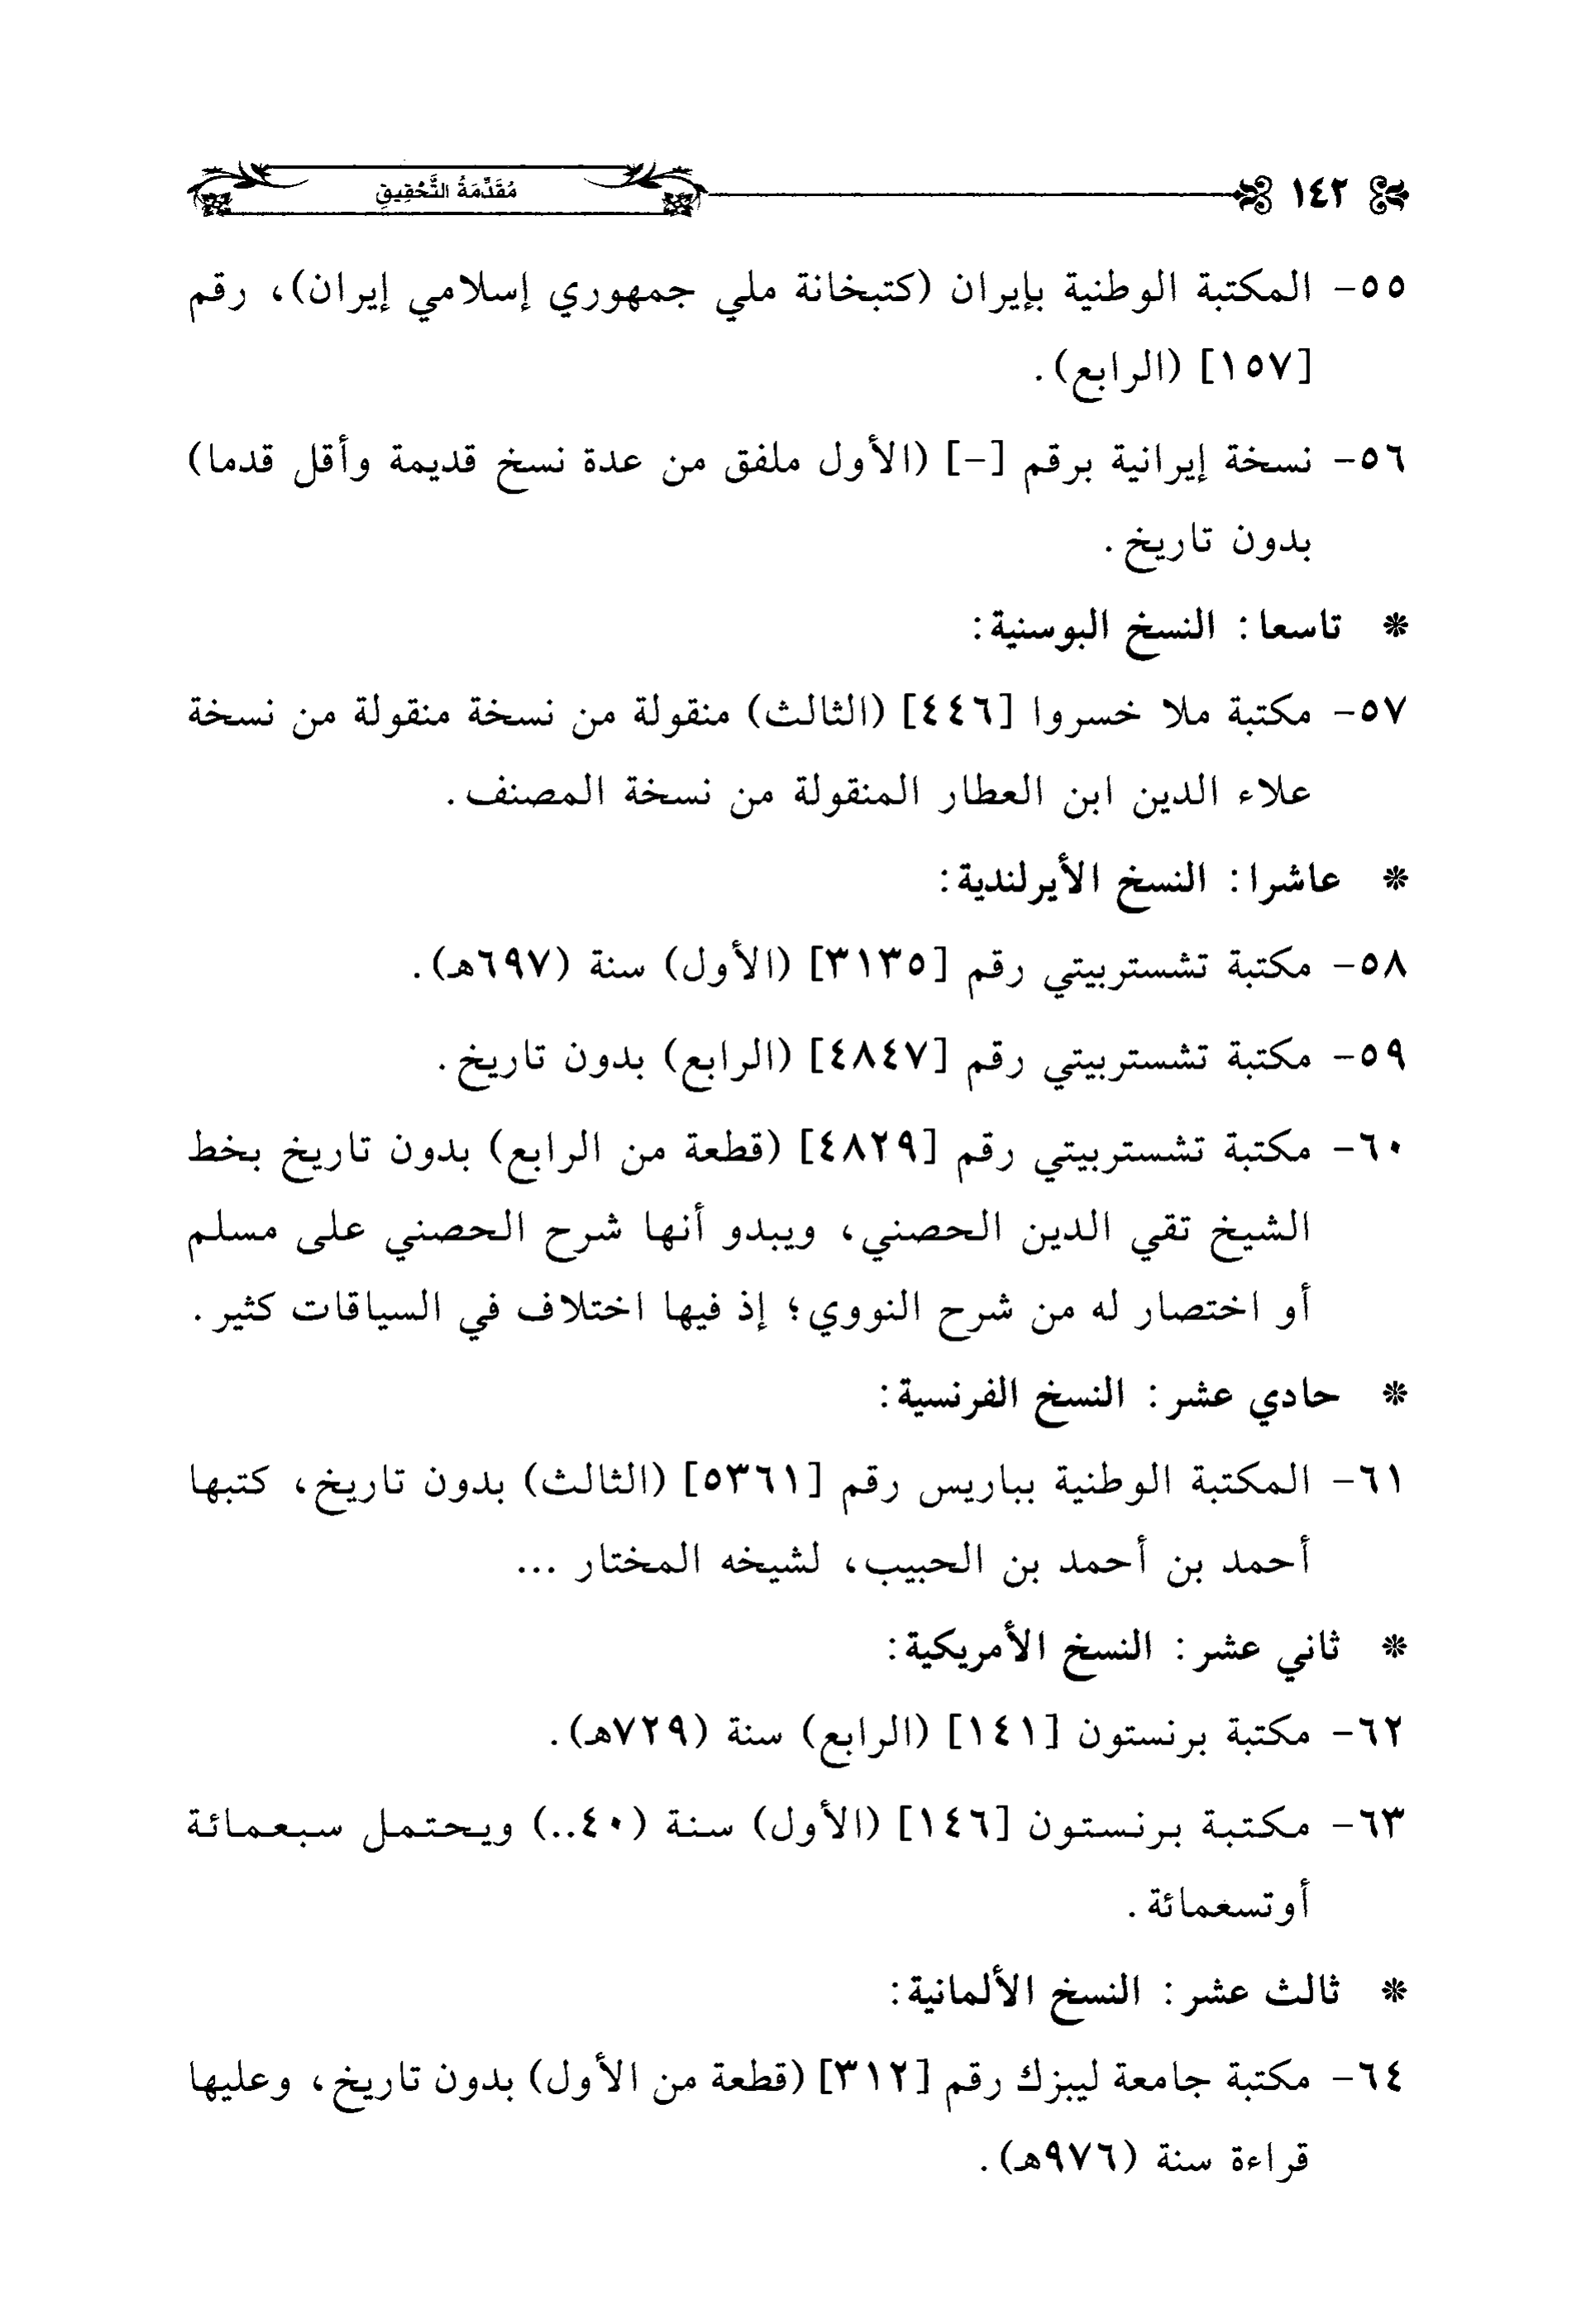 ١٤٢ مُقَدِّمَةُ التَّحْقِيقِ
٥٥- المكتبة الوطنية بإيران (كتبخانة ملي جمهوري إسلامي إيران)، رقم
[١٥٧] (الرابع).
٥٦- نسخة إيرانية برقم [-] (الأول ملفق من عدة نسخ قديمة وأقل قدما)
بدون تاريخ.
* تاسعا: النسخ البوسنية:
٥٧- مكتبة ملا خسروا [٤٤٦] (الثالث) منقولة من نسخة منقولة من نسخة
علاء الدين ابن العطار المنقولة من نسخة المصنف.
* عاشرا: النسخ الأيرلندية:
٥٨- مكتبة تشستربيتي رقم [٣١٣٥] (الأول) سنة (٦٩٧هـ).
٥٩- مكتبة تشستربيتي رقم [٤٨٤٧] (الرابع) بدون تاريخ.
٦٠- مكتبة تشستربيتي رقم [٤٨٢٩] (قطعة من الرابع) بدون تاريخ بخط
الشيخ تقي الدين الحصني، ويبدو أنها شرح الحصني على مسلم
أو اختصار له من شرح النووي؛ إذ فيها اختلاف في السياقات كثير.
* حادي عشر: النسخ الفرنسية:
٦١- المكتبة الوطنية بباريس رقم [٥٣٦١] (الثالث) بدون تاريخ، كتبها
أحمد بن أحمد بن الحبيب، لشيخه المختار ...
* ثاني عشر: النسخ الأمريكية:
٦٢- مكتبة برنستون [١٤١] (الرابع) سنة (٧٢٩هـ).
٦٣- مكتبة برنستون [١٤٦] (الأول) سنة (٤٠..) ويحتمل سبعمائة
أوتسغمائة.
* ثالث عشر: النسخ الألمانية:
٦٤- مكتبة جامعة ليبزك رقم [٣١٢] (قطعة من الأول) بدون تاريخ، وعليها
قراءة سنة (٩٧٦هـ).